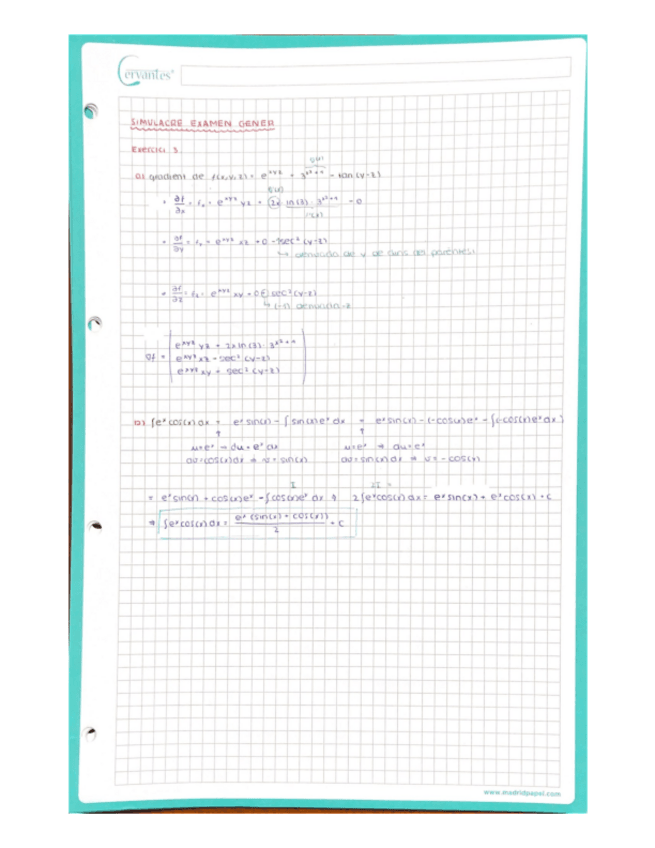 Cervantes
SIMULACRE EXAMEN GENER
Exercici 3
a) gradient de f(x,y,z) = e^xyz + 3^x²+4 - tan(y-z)
∂f/∂x = fx = e^xyz yz + 2x ln(3) · 3^x²+4 - 0
∂f/∂y = fy = e^xyz xz + 0 - sec² (y-z)
↳ derivada de y de dins del parèntesi
∂f/∂z = fz = e^xyz xy + 0 sec² (y-z)
↳ (-1) derivada -z
e^xyz yz + 2x ln(3) · 3^x²+4
∇f = e^xyz xz - sec² (y-z)
e^xyz xy + sec² (y-z)
b) ∫e^x cos(x) dx = e^x sin(x) - ∫ sin(x) e^x dx = e^x sin(x) - (-cos(x))e^x - ∫(-cos(x)) e^x dx
u = e^x → du = e^x dx u = e^x → du = e^x
dv = cos(x) dx → v = sin(x) dv = sin(x) dx → v = -cos(x)
I 2I =
= e^x sin(x) + cos(x) e^x - ∫ cos(x) e^x dx → 2∫e^x cos(x) dx = e^x sin(x) + e^x cos(x) + C
→ ∫e^x cos(x) dx = e^x (sin(x) + cos(x)) / 2 + C
www.madridpapel.com